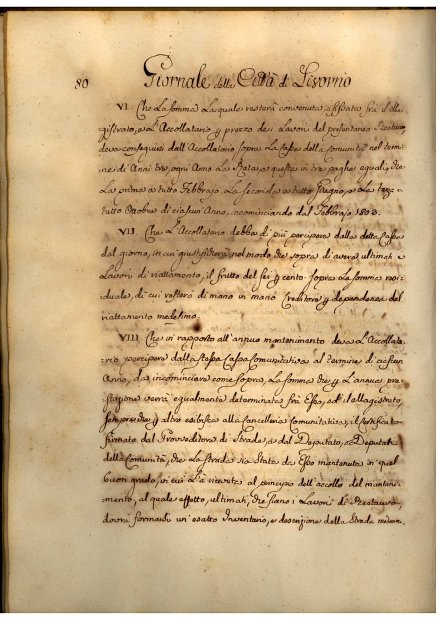 80 Giornale della Città di Livorno
VI. Che la somma, la quale resterà convenuta, e fissata frà il Ma-
gistrato, e l'Accollatario p prezzo dei Lavori del prefontaneo Restauro,
deva conseguirsi dall'Accollatario sopra la Cassa della Comunità nel termi-
ne di Anni tre, ogni Anno la Rata, e questa in tre paghe eguali, che
la prima a tutto Febbrajo, la seconda a tutto Giugno, e la terza a
tutto Ottobre di ciascun Anno, incominciando dal Febbrajo 1803.
VII. Che l'Accollatario debba di più percipere dalla detta Cassa
dal giorno, in cui giustificherà nel modo che sopra di avere ultimati i
Lavori di riattamento, il frutto del sei p cento sopra la somma resi-
duale, di cui resterà di mano in mano Creditore p dependenza del
riattamento medesimo.
VIII. Che in rapporto all'annuo mantenimento deva l'Accolla-
rio percipere dalla stessa Cassa Comunitativa al termine di ciascun
Anno, da incominciare come sopra, la somma che p l'annua pre-
stazione verrà egualmente determinata frà Esso, ed il Magistrato,
sempre che p altro esibisca alla Cancelleria Comunitativa, il Certificato
firmato dal Provveditore di Strade, e dal Deputato, o Deputati
della Comunità, che la strada sia stata da Esso mantenuta in quel
buon grado, in cui l'à ricevuta al principio dell'accollo del manteni-
mento, al quale effetto, ultimati, che siano i Lavori di Restauro,
dovrà formarsi un'esatto Inventario, e descrizione della Strada medesi-